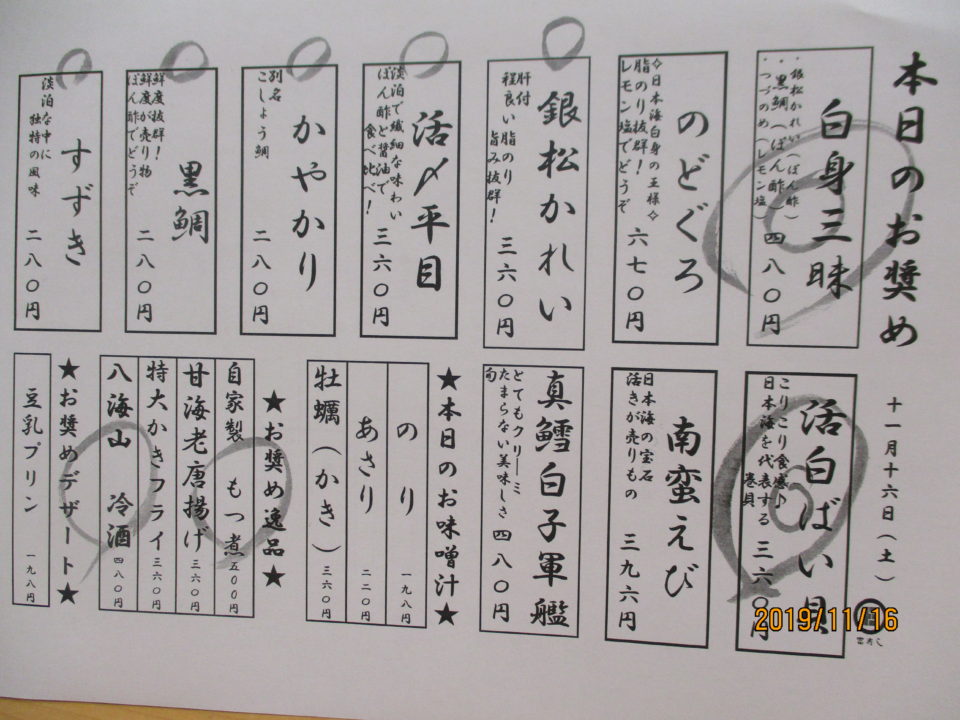 本日のお奨め
十一月十六日(土)
白身三昧
・銀松かれい(ぽん酢)
・黒鯛(ぽん酢)
・つづのめ(レモン塩)
四八〇円
のどぐろ
◇日本海白身の王様◇
脂のり抜群!
レモン塩でどうぞ
六七〇円
銀松かれい
肝付
程良い脂のり
旨み抜群!
三六〇円
活〆平目
淡泊で繊細な味わい
ぽん酢と醤油で
食べ比べ!
三六〇円
かやかり
別名
こしょう鯛
二八〇円
黒鯛
鮮度抜群!
鮮度が売り物
ぽん酢でどうぞ
二八〇円
すずき
淡泊な中に
独特の風味
二八〇円
活白ばい貝
こりこり食感♪
日本海を代表する
巻貝
三六〇円
南蛮えび
日本海の宝石
活きが売りもの
三九六円
真鱈白子軍艦
とてもクリーミー
たまらない美味しさ
旬
四八〇円
★本日のお味噌汁★
のり 一九八円
あさり 二二〇円
牡蠣(かき) 三六〇円
★お奨め逸品★
自家製 もつ煮 五00円
甘海老唐揚げ 三六〇円
特大かきフライ 三六〇円
八海山 冷酒 四八〇円
★お奨めデザート★
豆乳プリン 一九八円
2019/11/16